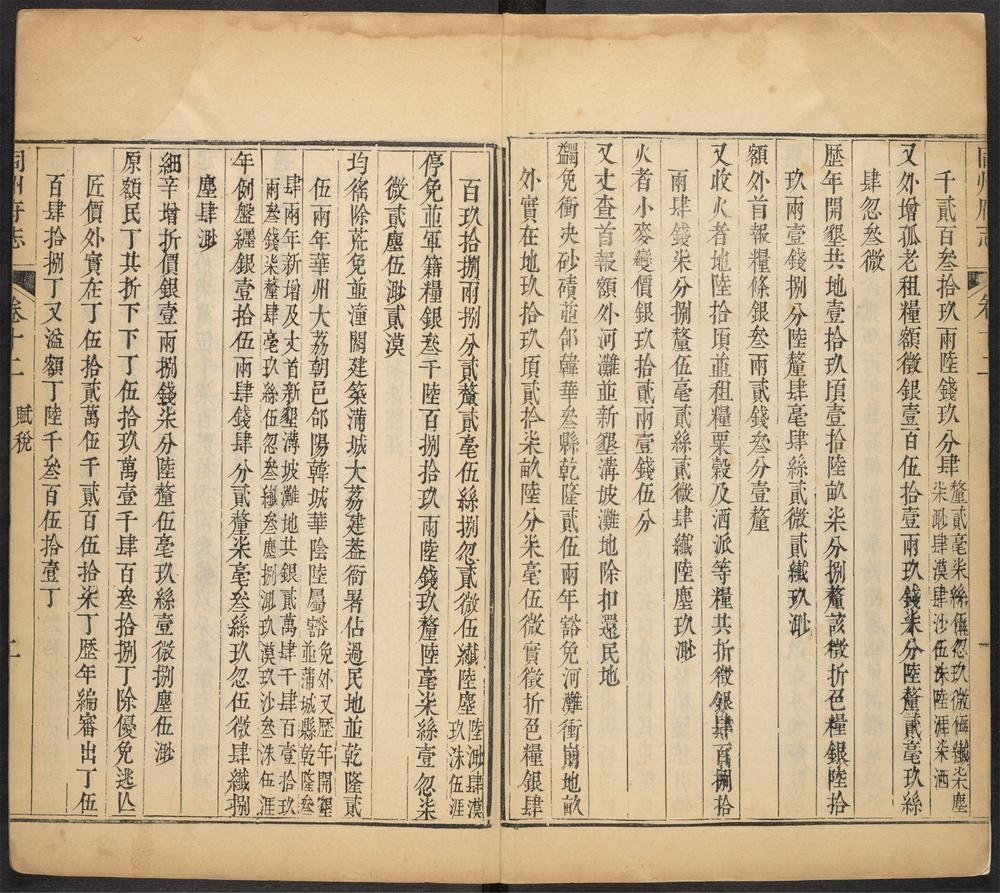 千貳百叁拾玖兩陸錢玖分肆釐貳毫柒絲伍忽玖微伍纖柒塵
柒渺肆漠肆沙伍洙陸涯柒洒
又外增孤老租糧額徵銀壹百伍拾壹兩玖錢柒分陸釐貳毫玖絲
肆忽叁微
歷年開墾共地壹拾玖頃壹拾陸畝柒分捌釐該徵折色糧銀陸拾
玖兩壹錢捌分陸釐肆毫肆絲貳微貳纖玖渺
額外首報糧條銀叁兩貳錢叁分壹釐
又收火者地陸拾頃並租糧粟穀及洒派等糧共折徵銀肆百捌拾
兩肆錢柒分捌釐伍毫貳絲貳微肆纖陸塵玖渺
火者小麥變價銀玖拾貳兩壹錢伍分
又丈查首報額外河灘並新墾溝坡灘地除扣還民地
蠲免衝決砂磧並郃韓華叁縣乾隆貳伍兩年豁免河灘衝崩地畝
外實在地玖拾玖頃貳拾柒畝陸分柒毫伍微實徵折色糧銀肆
百玖拾捌兩捌分貳釐貳毫伍絲捌忽貳微伍纖陸塵陸渺肆漠
玖洙伍涯
停免並軍籍糧銀叁千陸百捌拾玖兩陸錢玖釐陸毫柒絲壹忽柒
微貳塵伍渺貳漠
均徭除荒免並潼關建築蒲城大荔建葢衙署佔過民地並乾隆貳
伍兩年華州大荔朝邑郃陽韓城華陰陸屬豁免外又歷年開墾
並蒲城縣乾隆叁
肆兩年新增及丈首新墾溝坡灘地共銀貳萬肆千肆百壹拾玖
兩叁錢柒釐肆毫玖絲伍忽叁纖叁塵捌渺玖漠玖沙叁洙伍涯
年例盤纏銀壹拾伍兩肆錢肆分貳釐柒毫叁絲玖忽伍微肆纖捌
塵肆渺
細辛增折價銀壹兩捌錢柒分陸釐伍毫玖絲壹微捌塵伍渺
原額民丁共折下下丁伍拾玖萬壹千肆百叁拾捌丁除優免逃亾
匠價外實在丁伍拾貳萬伍千貳百伍拾柒丁歷年編審出丁伍
百肆拾捌丁又溢額丁陸千叁百伍拾壹丁
同州府志
卷十二
賦稅
二